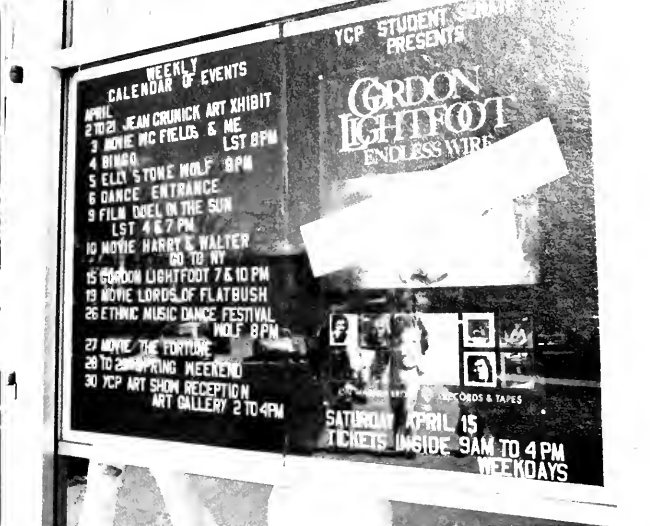 WEEKLY
CALENDAR OF EVENTS
APRIL
2 TO 21 JEAN CRUNICK ART XHIBIT
3 MOVIE WC FIELDS & ME
LST 8PM
4 BINGO
5 ELLY STONE WOLF 8PM
6 DANCE ENTRANCE
9 FILM DUEL IN THE SUN
LST 4 & 7 PM
10 MOVIE HARRY & WALTER
GO TO NY
15 GORDON LIGHTFOOT 7 & 10 PM
19 MOVIE LORDS OF FLATBUSH
26 ETHNIC MUSIC DANCE FESTIVAL
WOLF 8PM
27 MOVIE THE FORTUNE
28 TO SPRING WEEKEND
30 YCP ART SHOW RECEPTION
ART GALLERY 2 TO 4PM
YCP STUDENT SENATE
PRESENTS
GORDON
LIGHTFOOT
ENDLESS WIRE
ON WARNER BROS RECORDS & TAPES
SATURDAY APRIL 15
TICKETS INSIDE 9AM TO 4 PM
WEEKDAYS